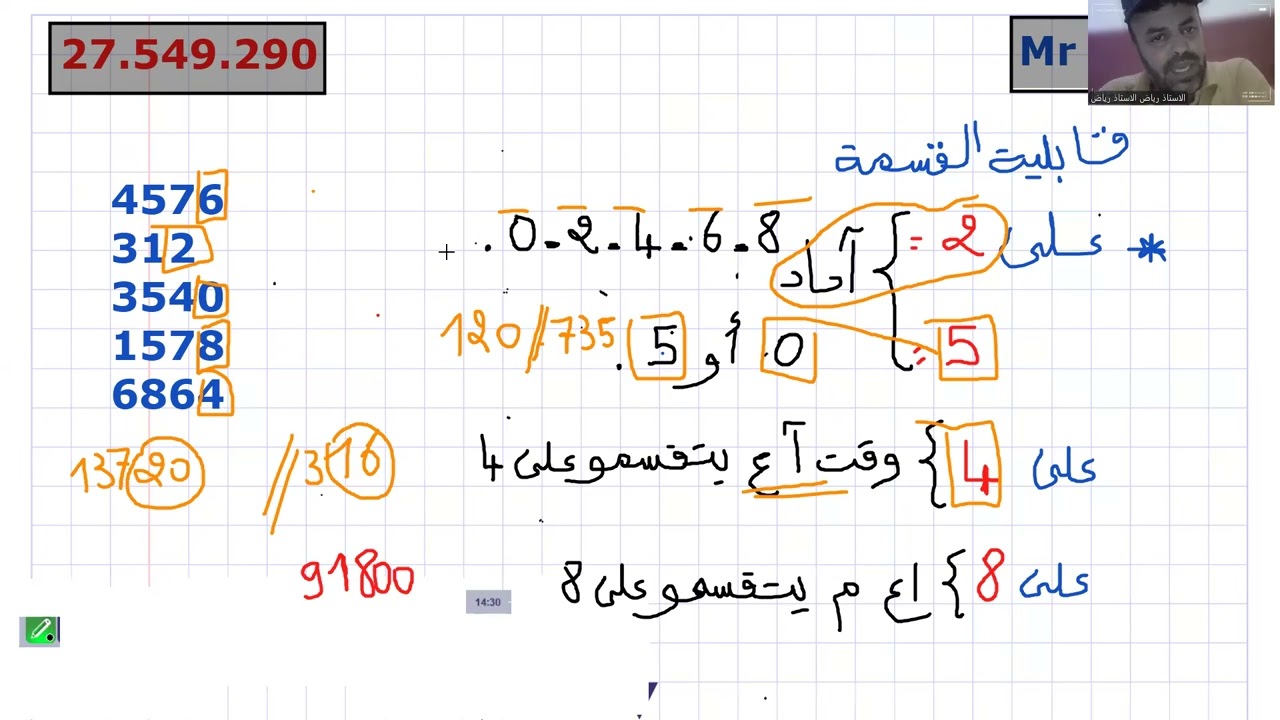 27.549.290
Mr
الاستاذ رياض الاستاذ رياض
قابلية القسمة
* على 2 = آحاد 0 - 2 - 4 - 6 - 8 .
5 = 0 أو 5 . 735 // 120
على 4 } وقت آ ع يتقسمو على 4
على 8 } اع م يتقسمو على 8
4576
312
3540
1578
6864
13720 // 316
91800
14:30